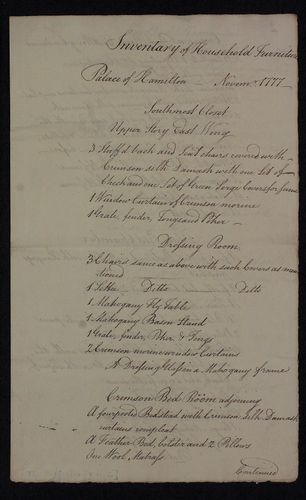 Inventary of Household Furniture
Palace of Hamilton — Novemr. 1777 —
Southmost Closet
Upper Story East Wing
3 Stuff'd back and Seat chairs covered with
Crimson silk Damask with one Set of
Check and one Set of Green Serge Covers for same
1 Window Curtain of Crimson morine
1 Grate, fender, Tongs and Poker —
Dressing Room
3 Chairs same as above with such Covers as men
tioned
1 Settee Ditto Ditto
1 Mahogany Fly Table
1 Mahogany Bason Stand
1 Grate, fender, Poker & Tongs
2 Crimson morine window Curtains
A Dressing Glass in a Mahogany frame
Crimson Bed Room adjoining
A four posted Bedstead with Crimson Silk Damask
curtains compleat
A Feather Bed, bolster and 2 Pillows
One Wool Matrass
Continued